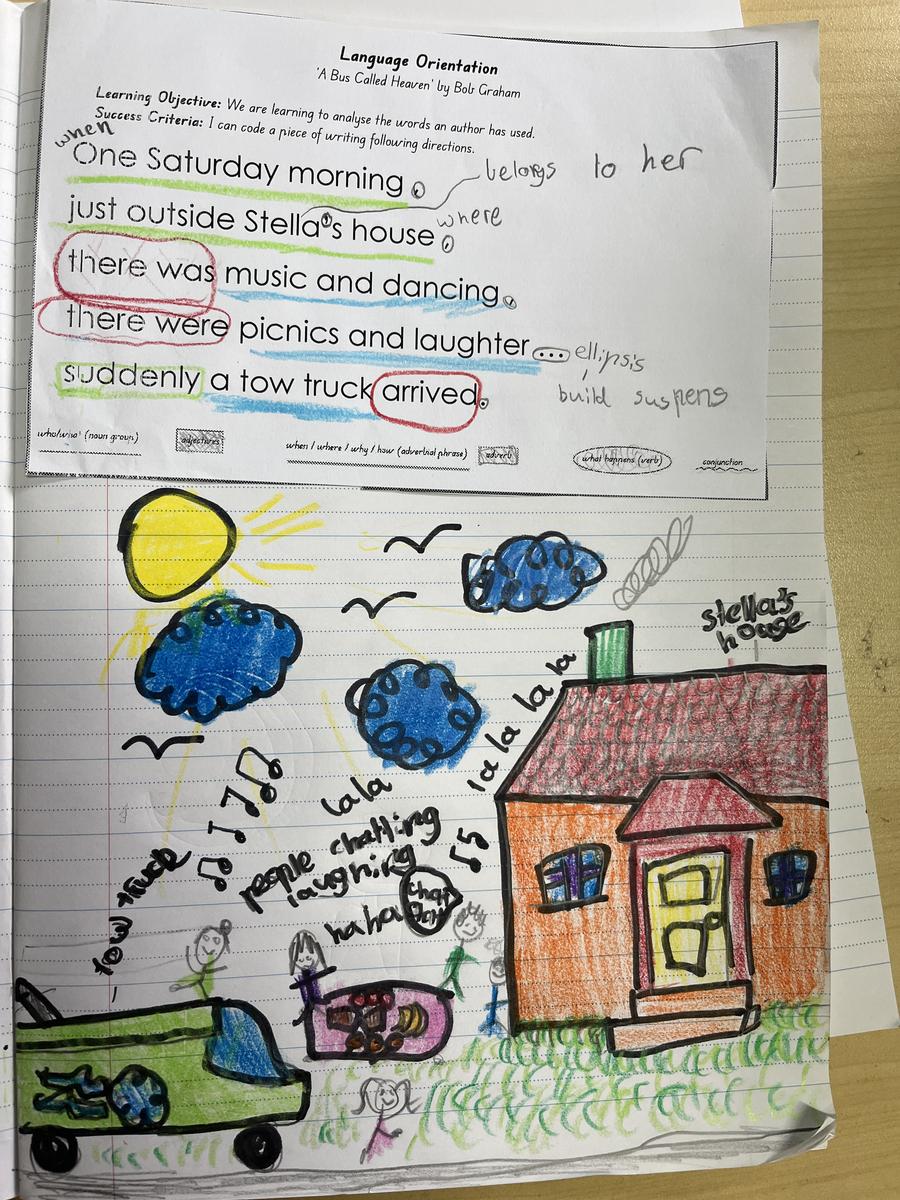 Language Orientation
'A Bus Called Heaven' by Bob Graham
Learning Objective: We are learning to analyse the words an author has used.
Success Criteria: I can code a piece of writing following directions.
when
One Saturday morning,
belongs to her
just outside Stella's house,
where
there was music and dancing,
there were picnics and laughter...
ellipsis
build suspens
suddenly a tow truck arrived.
who/what (noun group)
adjectives
when / where / why / how (adverbial phrase)
adverb
what happens (verb)
conjunction
stella's
house
la la la la
lala
people chatting
laughing
haha
chat
tow truck